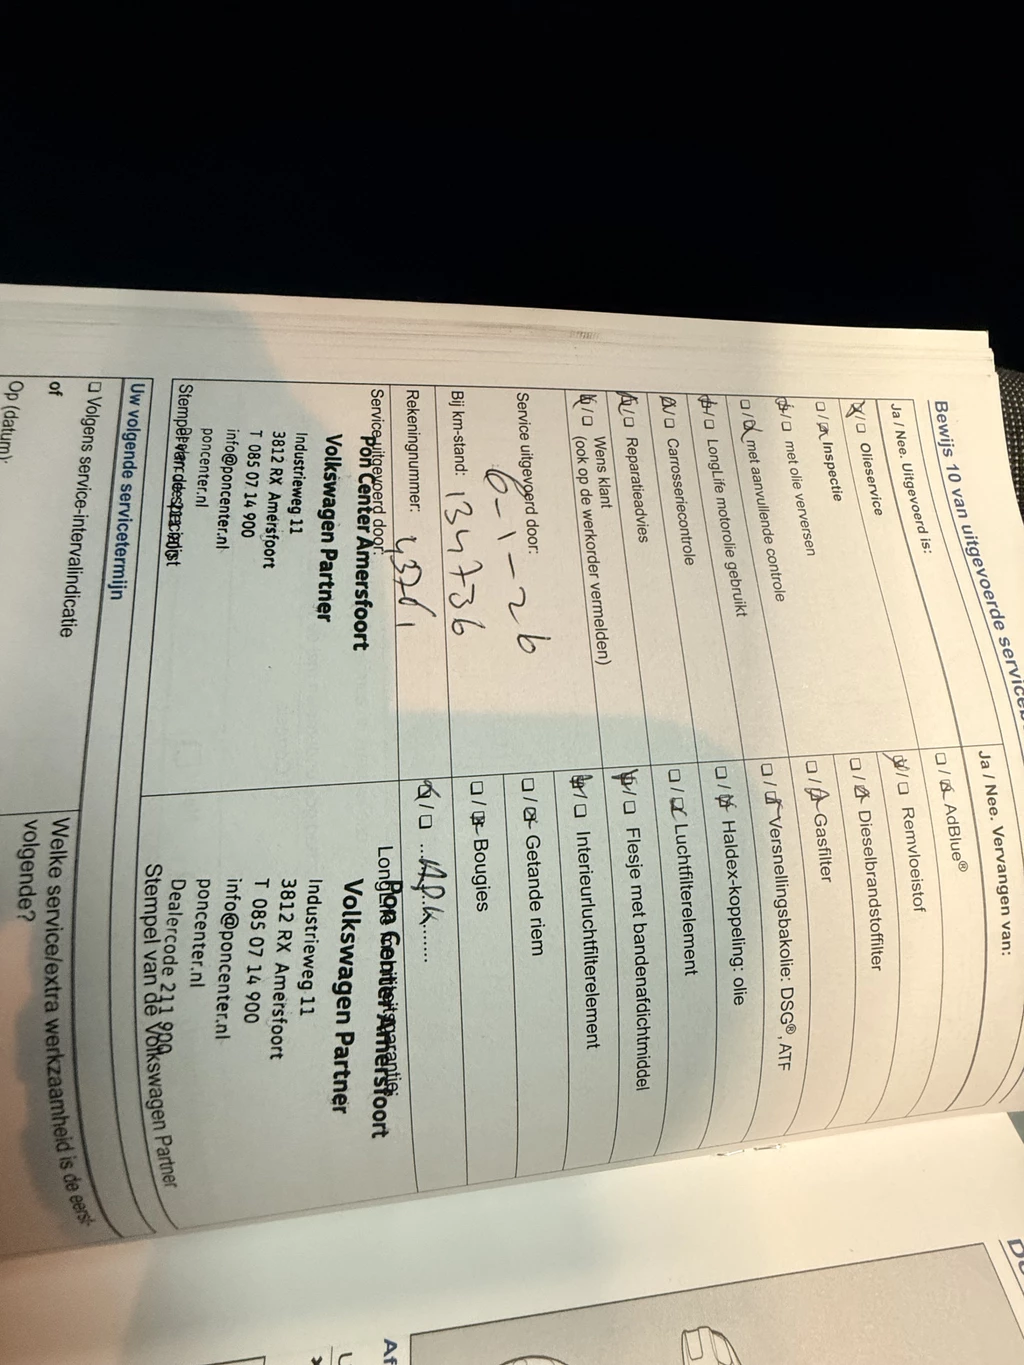 Bewijs 10 van uitgevoerde
Ja / Nee. Uitgevoerd is:
☒/☐ Olieservice
☐/☒ Inspectie
☒/☐ met olie verversen
☐/☒ met aanvullende controle
☒/☐ LongLife motorolie gebruikt
☒/☐ Carrosseriecontrole
☒/☐ Reparatieadvies
☒/☐ Wens klant
(ook op de werkorder vermelden)
Service uitgevoerd door:
6-1-26
Bij km-stand: 134736
Rekeningnummer: 43761
Service uitgevoerd door:
Pon Center Amersfoort
Volkswagen Partner
Industrieweg 11
3812 RX Amersfoort
T 085 07 14 900
info@poncenter.nl
poncenter.nl
Stempel van de specialist
Ja / Nee. Vervangen van:
☐/☒ AdBlue®
☒/☐ Remvloeistof
☐/☒ Dieselbrandstoffilter
☐/☒ Gasfilter
☐/☒ Versnellingsbakolie: DSG®, ATF
☐/☒ Haldex-koppeling: olie
☐/☒ Luchtfilterelement
☒/☐ Flesje met bandenafdichtmiddel
☒/☐ Interieurluchtfilterelement
☐/☒ Getande riem
☐/☒ Bougies
☒/☐ ..APK......
Pon Center Amersfoort
Volkswagen Partner
Industrieweg 11
3812 RX Amersfoort
T 085 07 14 900
info@poncenter.nl
poncenter.nl
Dealercode 211 900
Stempel van de Volkswagen Partner
Uw volgende servicetermijn
☐ Volgens service-intervalindicatie
of
Op (datum):
Welke service/extra werkzaamheid is de eerst-
volgende?